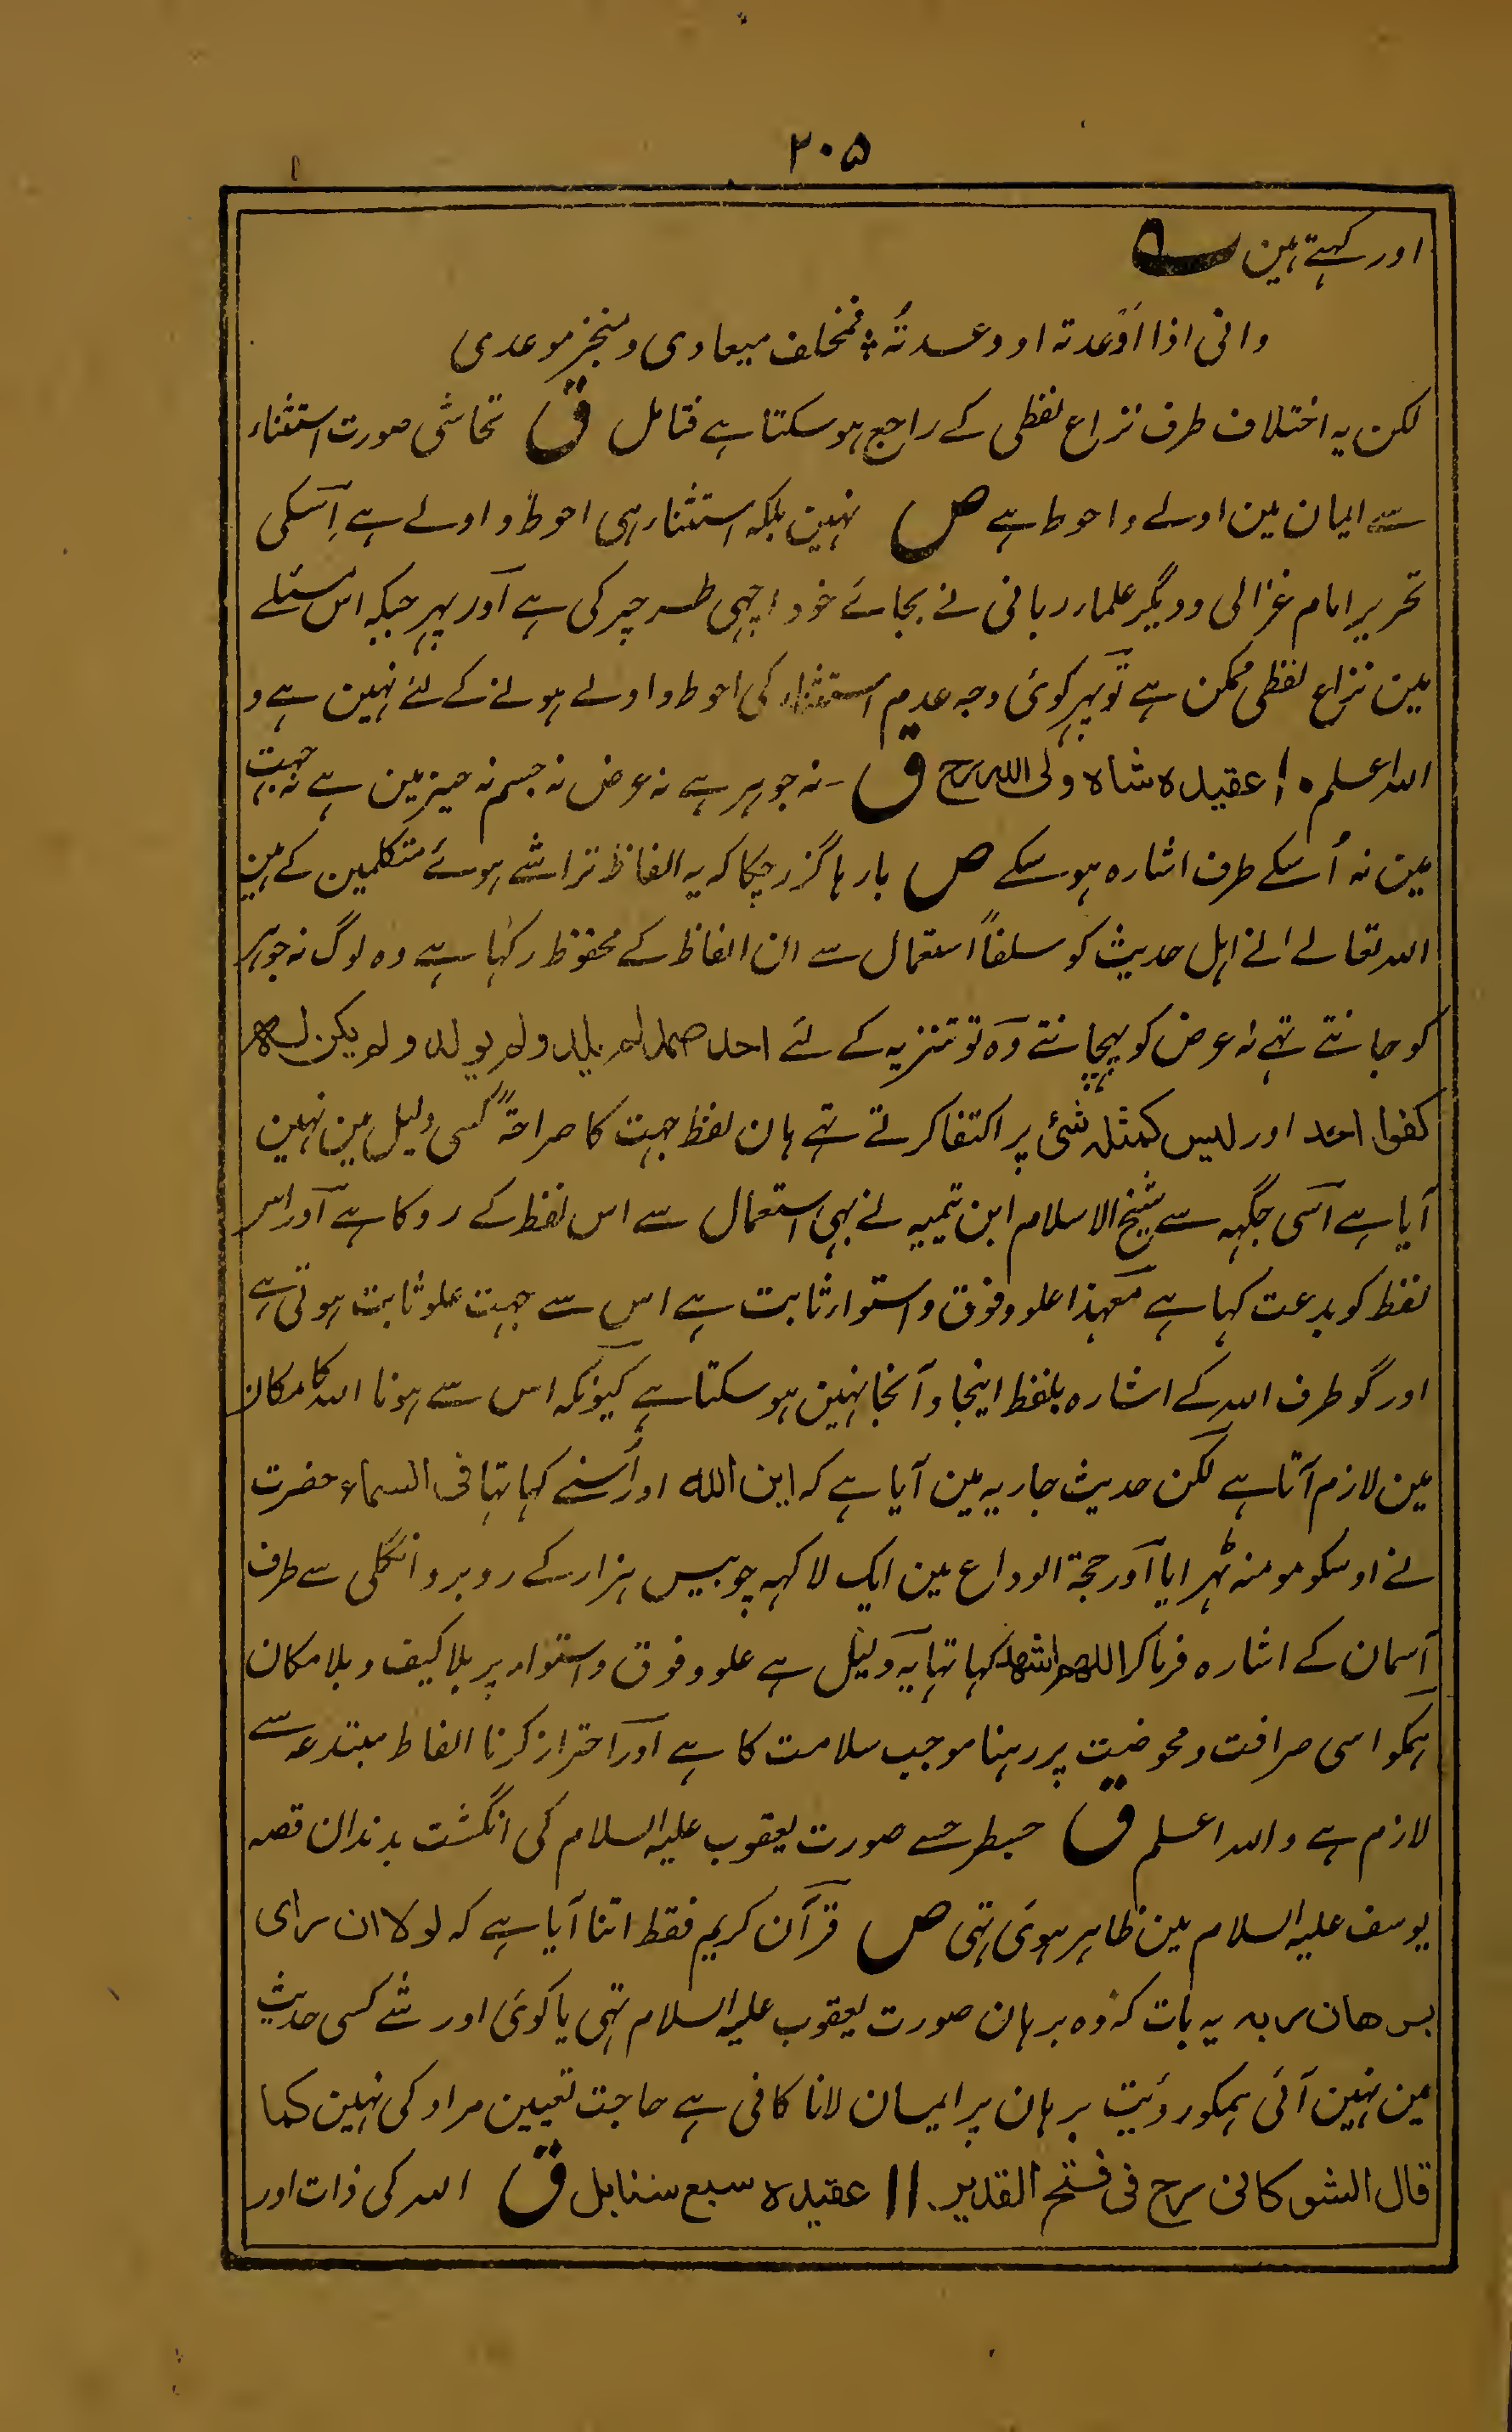 ۲۰۵
اور کہتے ہین ؎
وانی اذا اوعدتہ او وعدتُہ ٭ لمخلف میعادی ومنجز موعدی
لکن یہ اختلاف طرف نزاع لفظی کے راجع ہو سکتا ہے فتامل ق تحاشی صورت استثناء
سے ایمان مین اولے واحوط ہے ص نہین بلکہ استثناء ہی احوط واولے ہے اِسکی
تحریر امام غزالی ودیگر علماء ربانی نے بجائے خود اچہی طرحپر کی ہے اور پہر جبکہ اس مسئلے
مین نزاع لفظی ممکن ہے تو پہر کوئی وجہ عدم استثناء کی احوط واولے ہونے کے لئے نہین ہے و
اللہ اعلم ۱۰ عقیدہ شاہ ولی اللہ رح ق ۔ نہ جوہر ہے نہ عرض نہ جسم نہ حیز مین ہے نہ جہت
مین نہ اُسکے طرف اشارہ ہو سکے ص بارہا گزر چکا کہ یہ الفاظ تراشے ہوئے متکلمین کے ہین
اللہ تعالے نے اہل حدیث کو سلفاً استعمال سے ان الفاظ کے محفوظ رکہا ہے وہ لوگ نہ جوہر
کو جانتے تہے نہ عرض کو پہچانتے وہ تو تنزیہ کے لئے احد صمد لم یلد ولم یولد ولم یکن لہ
کفوا احد اور لیس کمثلہ شئ پر اکتفا کرتے تہے ہان لفظ جہت کا صراحۃً کسی دلیل مین نہین
آیا ہے اسی جگہہ سے شیخ الاسلام ابن تیمیہ نے بہی استعمال سے اس لفظ کے روکا ہے اور اس
لفظ کو بدعت کہا ہے معہذا علو وفوق واستواء ثابت ہے اس سے جہت علو ثابت ہوتی ہے
اور گو طرف اللہ کے اشارہ بلفظ اینجا وآنجا نہین ہو سکتا ہے کیونکہ اس سے ہونا اللہ کا مکان
مین لازم آتا ہے لکن حدیث جاریہ مین آیا ہے کہ این اللہ اور اُسنے کہا تہا فی السماء حضرت
نے اوسکو مومنہ ٹہرایا اور حجۃ الوداع مین ایک لاکہہ چوبیس ہزار کے روبرو انگلی سے طرف
آسمان کے اشارہ فرما کر اللھم اشھد کہا تہا یہ دلیل ہے علو وفوق واستواء پر بلا کیف وبلا مکان
ہمکو اسی صرافت ومحوضیت پر رہنا موجب سلامت کا ہے اور احتراز کرنا الفاظ مبتدعہ سے
لازم ہے واللہ اعلم ق جسطرحسے صورت یعقوب علیہ السلام کی انگشت بدندان قصہ
یوسف علیہ السلام مین ظاہر ہوئی تہی ص قرآن کریم فقط اتنا آیا ہے کہ لولا ان رای
برھان ربہ یہ بات کہ وہ برہان صورت یعقوب علیہ السلام تہی یا کوئی اور شے کسی حدیث
مین نہین آئی ہمکو روئیت برہان پر ایمان لانا کافی ہے حاجت تعیین مراد کی نہین کما
قال الشوکانی رح فی فتح القدیر ۔ ۱۱ عقیدہ سبع سنابل ق اللہ کی ذات اور